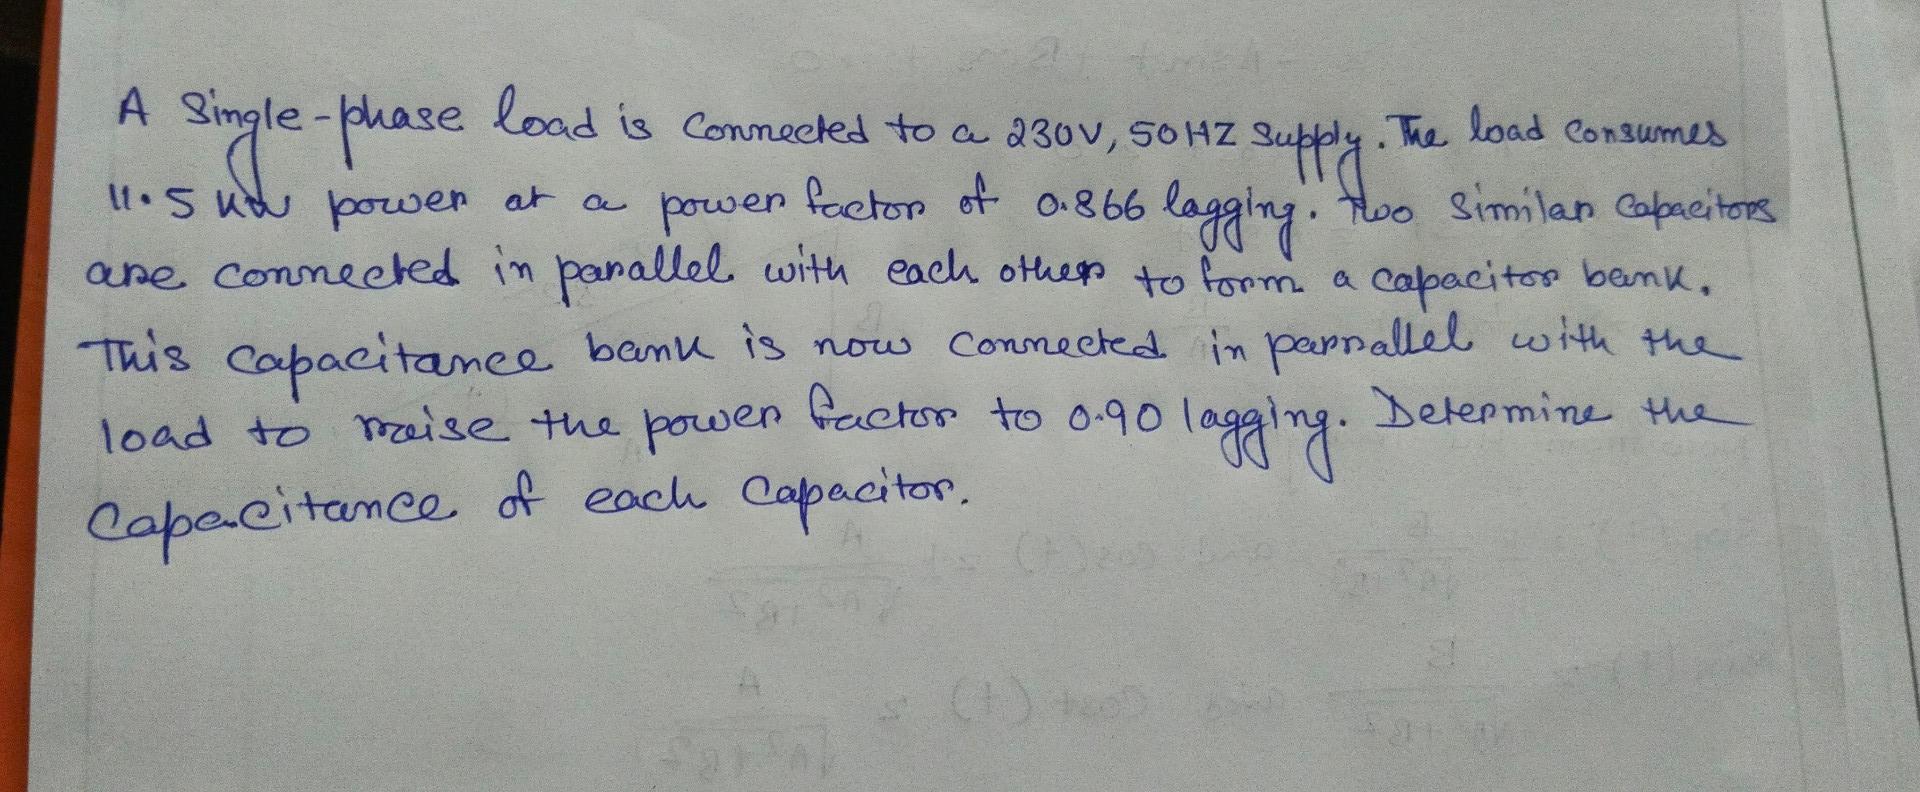 A Single-phase load is Connected to a 230V, 50HZ Supply. The load Consumes
11.5 kW power at a power factor of 0.866 lagging. Two Similar Capacitors
are connected in parallel with each other to form a capacitor bank.
This Capacitance bank is now Connected in parrallel with the
load to raise the power factor to 0.90 lagging. Determine the
Capacitance of each Capacitor.